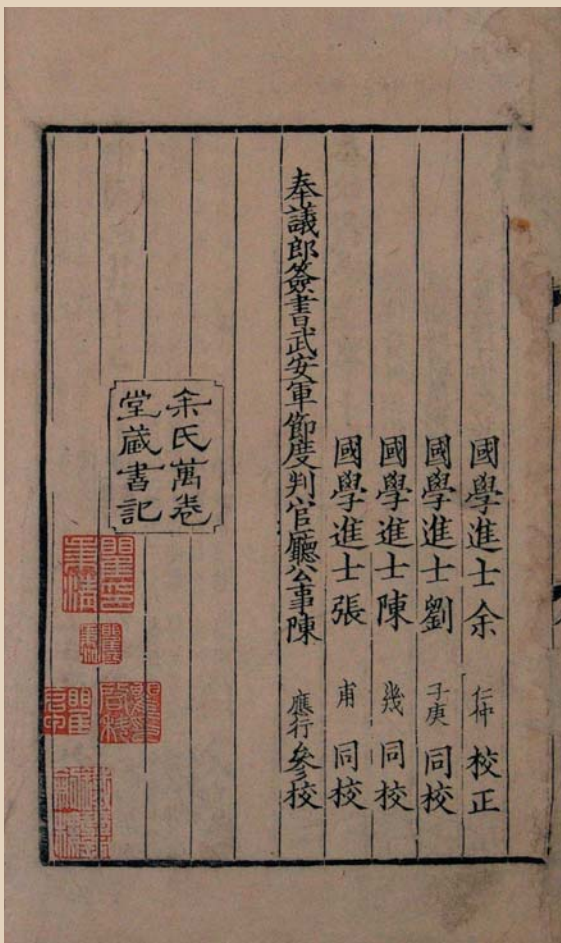 國學進士余仁仲校正
國學進士劉子庚同校
國學進士陳幾同校
國學進士張甫同校
奉議郎簽書武安軍節度判官廳公事陳應行參校
余氏萬卷
堂藏書記
瞿印
秉清